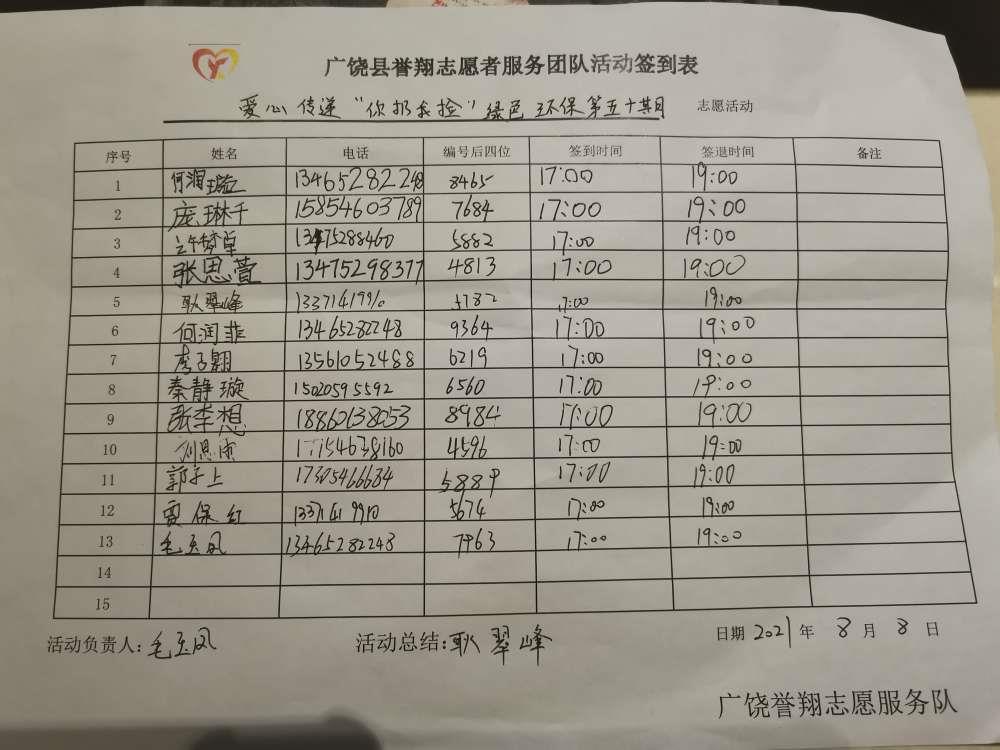 广饶县誉翔志愿者服务团队活动签到表
爱心传递“你扔我捡”绿色环保第五十期 志愿活动
序号 姓名 电话 编号后四位 签到时间 签退时间 备注
1 何润璇 13465282248 8465 17:00 19:00
2 庞琳千 15854603789 7684 17:00 19:00
3 13475288460 5882 17:00 19:00
4 张思萱 13475298377 4813 17:00 19:00
5 耿翠峰 17:00 19:00
6 何润菲 13465282248 9364 17:00 19:00
7 李子翱 13561052488 6219 17:00 19:00
8 秦静璇 15020595592 6560 17:00 19:00
9 张李想 18862638053 8984 17:00 19:00
10 4596 17:00 19:00
11 郭子上 17305466634 5889 17:00 19:00
12 贾保红 13371419910 5674 17:00 19:00
13 毛玉凤 13465282248 7963 17:00 19:00
14
15
活动负责人:毛玉凤 活动总结:耿翠峰 日期 2021 年 8 月 8 日
广饶誉翔志愿服务队